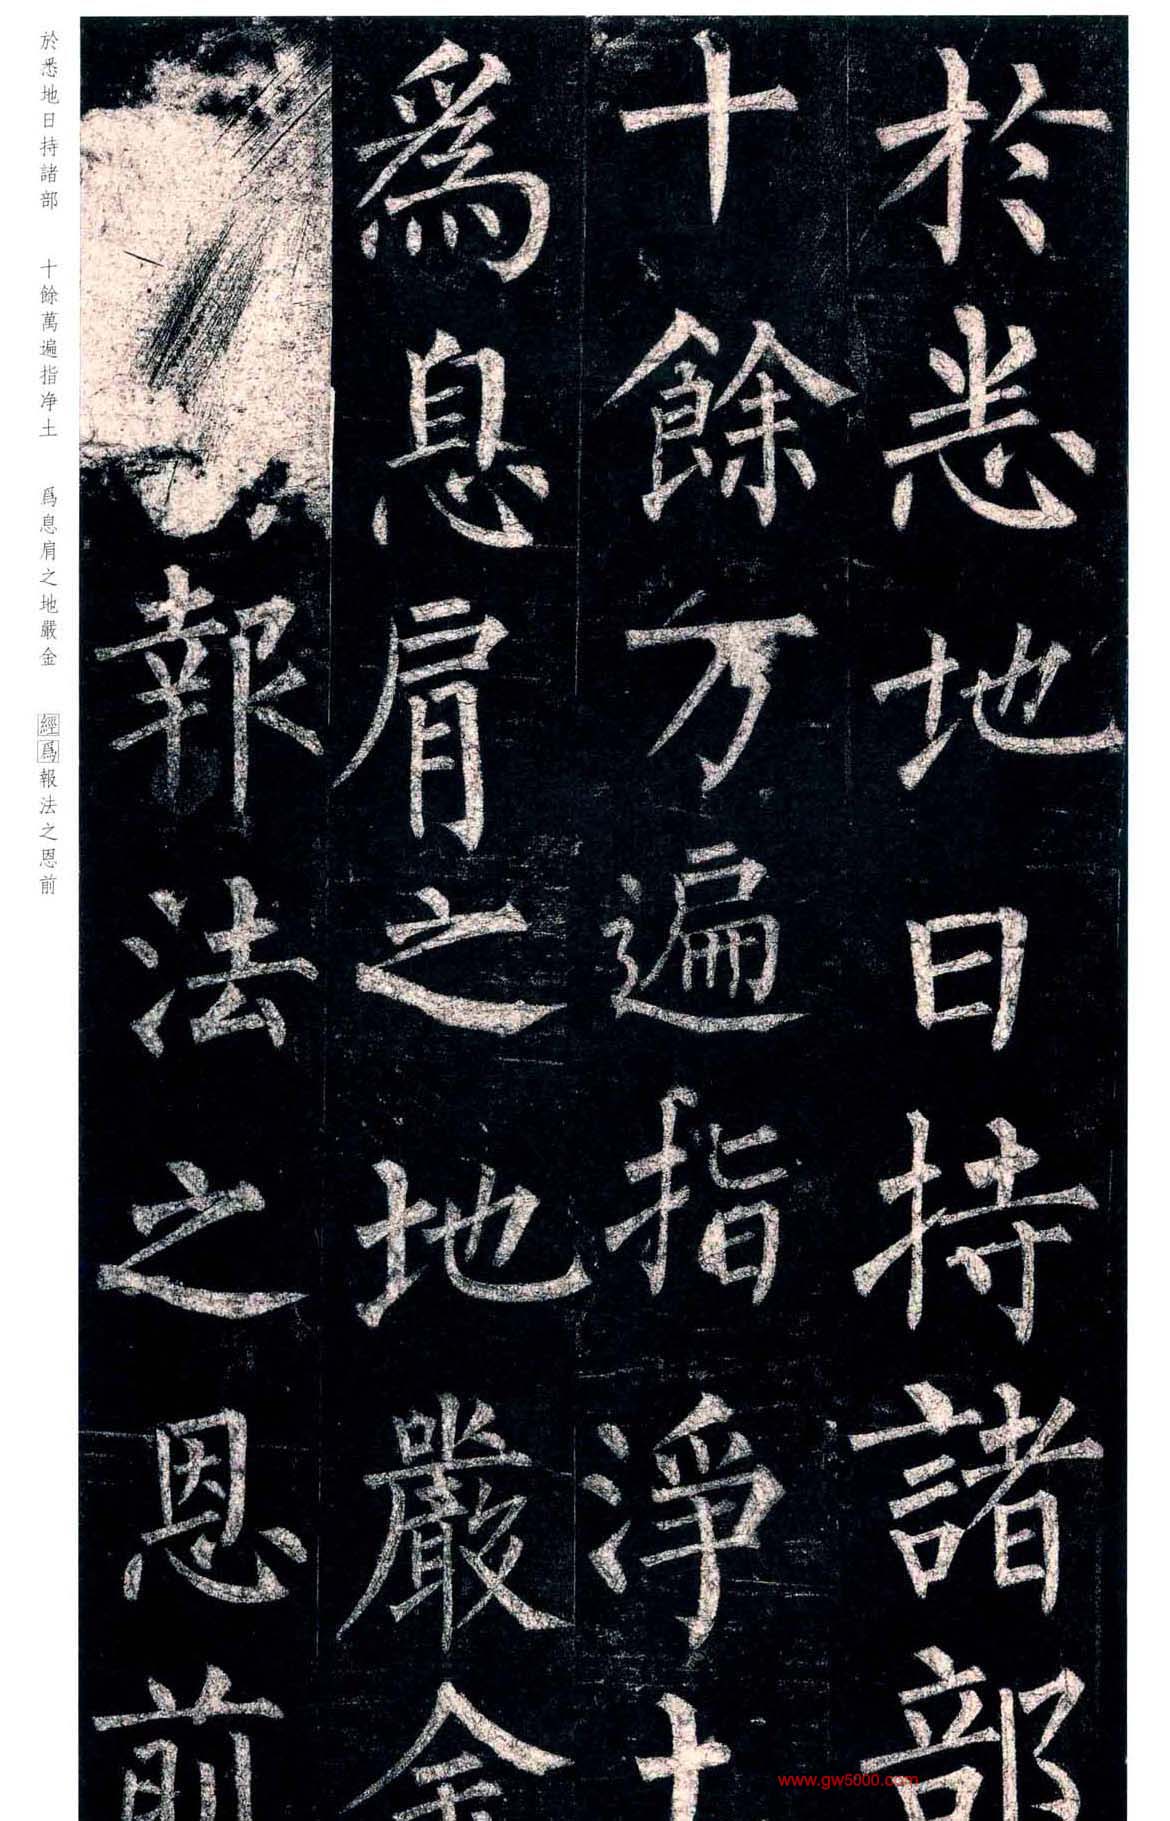 於悉地日持諸部
十餘万遍指淨土
爲息肩之地嚴金
報法之恩前
於悉地日持諸部 十餘萬遍指净土 爲息肩之地嚴金 經爲報法之恩前
www.gw5000.com